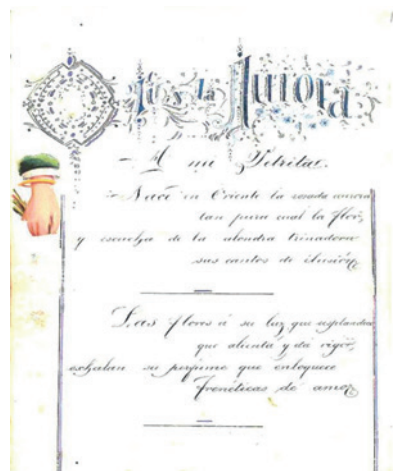 Oí y la Aurora
A mi Petrita.
Nace en Oriente la rosada aurora
tan pura cual la flor,
y escucha de la alondra trinadora
sus cantos de ilusión,
Las flores á su luz que resplandece
que alienta y dá vigor,
exhalan su perfume que enloquece
frenéticas de amor,